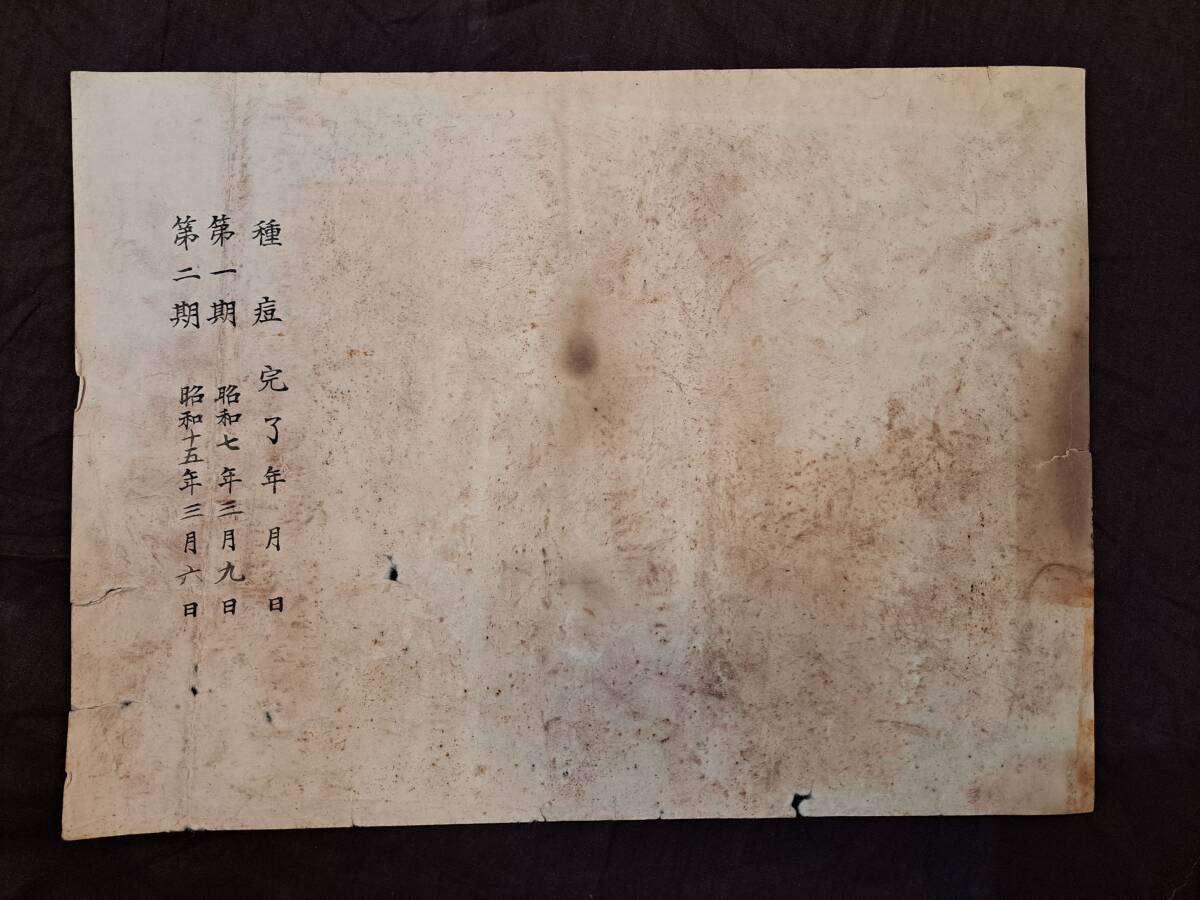 種痘完了年月日
第一期 昭和七年三月九日
第二期 昭和十五年三月六日